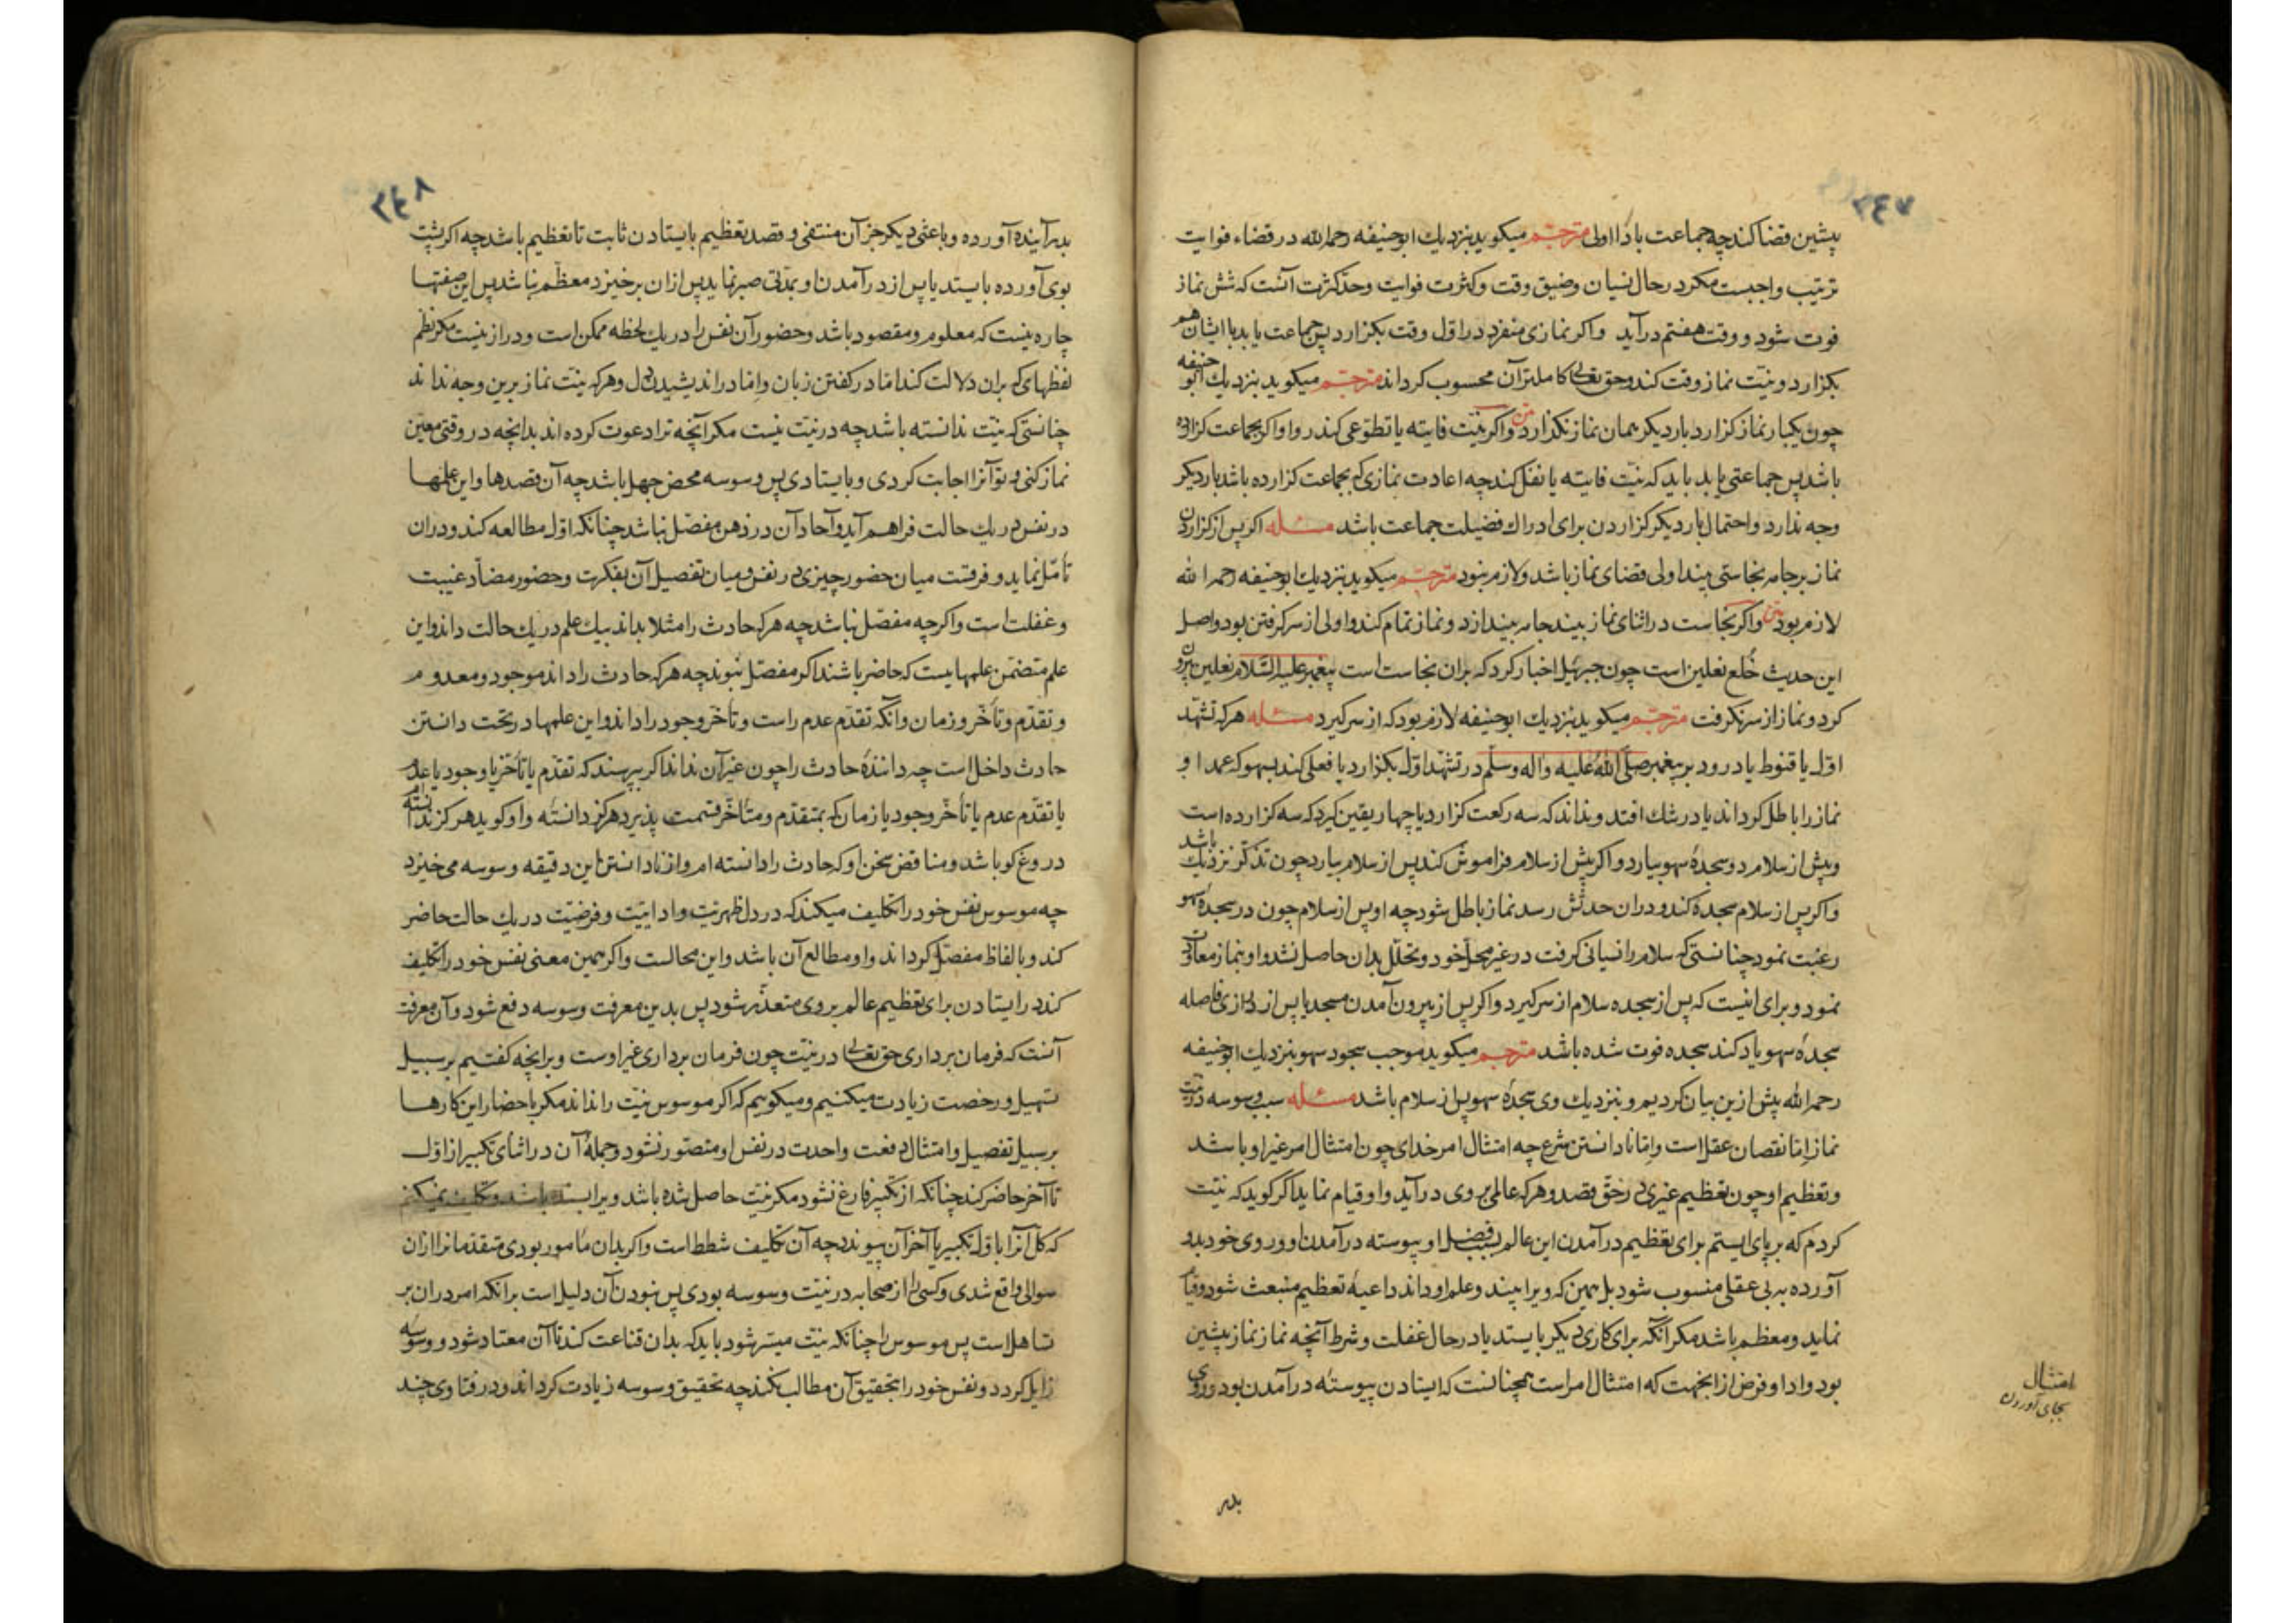 ۳۴۷
پیشین قضا کند چه جماعت بادا اولی مترجم میکوید بنزدیك ابوحنیفه رحمه الله در قضاء فوایت
ترتیب واجبست مکر در حال نسیان وضیق وقت وکثرت فوایت وحد کثرت آنست که شش نماز
فوت شود و وقت هفتم درآید واکر نمازی منفرد در اول وقت بکزارد پس جماعت یابد با ایشان هم
بکزارد و نیت نماز وقت کند وحق تعالی کاملتر آن محسوب کرداند مترجم میکوید بنزدیك ابو حنیفه
چون یکبار نماز کزارد بار دیکر همان نماز نکذارد متن واکر نیت فایته یا تطوعی کند روا واکر بجماعت کزارده
باشد پس جماعتی یابد باید که نیت فایته یا نفل کند چه اعادت نمازی که بجماعت کزارده باشد بار دیکر
وجه ندارد واحتمال بار دیکر کزاردن برای ادراك فضیلت جماعت باشد مسئله اکر پس از کزاردن
نماز بر جامه نجاستی بیند اولی قضای نماز باشد ولازم نبود مترجم میکوید بنزدیك ابوحنیفه رحمه الله
لازم بود متن واکر نجاست در اثنای نماز بیند جامه بیندازد و نماز تمام کند واولی از سر کرفتن بود واصل
این حدیث خلع نعلین است چون جبرئیل اخبار کرد که بران نجاست است پیغمبر علیه السلام نعلین بیرون
کرد و نماز از سر نکرفت مترجم میکوید بنزدیك ابوحنیفه لازم بود که از سر کیرد مسئله هر که تشهد
اول یا قنوط یا درود بر پیغمبر صلی الله علیه واله وسلم در تشهد اول بکزارد یا فعلی کند بسهو که عمد او
نماز را باطل کرداند یا در شك افتد وبداند که سه رکعت کزارد یا چهار یقین کیرد که سه کزارده است
وپیش از سلام دو سجدهٔ سهو بیارد واکر پیش از سلام فراموش کند پس از سلام بیارد چون تذکر نزدیك باشد
واکر پس از سلام سجده کند ودران حدثش رسد نماز باطل شود چه او پس از سلام چون در سجدهٔ سهو
رغبت نمود چنانستی که سلام را نسیانی کرفت در غیر محل خود وتحلل بدان حاصل نشد واو بنماز معاودت
نمود وبرای اینست که پس از سجده سلام از سر کیرد واکر پس از بیرون آمدن مسجد یا پس از درازی فاصله
سجدهٔ سهو یاد کند سجده فوت شده باشد مترجم میکوید موجب سجود سهو بنزدیك ابوحنیفه
رحمه الله پیش ازین بیان کردیم وبنزدیك وی سجدهٔ سهو پس از سلام باشد مسئله سبب وسوسه در نیت
نماز اما نقصان عقل است واما نادانستن شرع چه امتثال امر خدای چون امتثال امر غیر او باشد
وتعظیم او چون تعظیم غیری در حق قصد وهر که عالمی بروی درآید واو قیام نماید اکر کوید که نیت
کردم که بر پای ایستم برای تعظیم درآمدن این عالم بسبب فضل او پیوسته درآمدن او وروی خود بدو
آورده به بی عقلی منسوب شود بل همین که ویرا بیند وعلم او داند داعیهٔ تعظیم منبعث شود وقیام
نماید ومعظم باشد مکر آنکه برای کاری دیکر بایستد یا در حال غفلت وشرط آنچه نماز نماز پیشین
بود وادا وفرض ازانجهت که امتثال امراست همچنانست که ایستادن پیوستهٔ درآمدن بود وروی
امتثال
بجای آوردن
بدر
۳۴۸
بدر آینده آورده وباعثی دیکر جز آن منتفی وقصد تعظیم بایستادن ثابت تا تعظیم باشد چه اکر پشت
بوی آورده بایستد یا پس از درآمدن او بمدتی صبر نماید پس ازان برخیزد معظم نباشد پس این صفتها
چاره نیست که معلوم ومقصود باشد وحضور آن نفس را در یك لحظه ممکن است ودراز نیست مکر نظم
لفظهای که بران دلالت کند اما در کفتن زبان واما در اندیشیدن دل وهر که نیت نماز برین وجه نداند
چنانستی که نیت ندانسته باشد چه در نیت نیست مکر آنچه ترا دعوت کرده اند بدانچه در وقتی معین
نماز کنی وتو آنرا اجابت کردی وبایستادی پس وسوسه محض جهل باشد چه آن قصدها واین علمها
در نفس در یك حالت فراهم آید وآحاد آن در ذهن مفصل نباشد چنانکه اول مطالعه کند ودران
تأمل نماید وفرقست میان حضور چیزی در نفس ومیان تفصیل آن بفکرت وحضور مضاد غیبت
وغفلت است واکرچه مفصل نباشد چه هر که حادث را مثلا بداند بیك علم در یك حالت داند واین
علم متضمن علمهاییست که حاضر باشند اکر مفصل نبوند چه هر که حادث را داند موجود ومعدوم
وتقدم وتأخر وزمان وآنکه تقدم عدم راست وتأخر وجود را داند واین علمها در تحت دانستن
حادث داخل است چه دانندهٔ حادث را چون غیر آن نداند اکر بپرسند که تقدم یا تأخر یا وجود یا عدم
یا تقدم عدم یا تأخر وجود یا زمان که بمتقدم ومتأخر قسمت پذیرد هرکز دانسته واو کوید هرکز ندانسته ام
دروغ کو باشد ومناقض سخن او که حادث را دانسته ام واز نادانستن این دقیقه وسوسه می خیزد
چه موسوس نفس خود را تکلیف میکند که در دل ظهریت واداییت وفرضیت در یك حالت حاضر
کند وبالفاظ مفصل کرداند واو مطالع آن باشد واین محالست واکر همین معنی نفس خود را تکلیف
کند در ایستادن برای تعظیم عالم بروی متعذر شود پس بدین معرفت وسوسه دفع شود وآن معرفت
آنست که فرمان برداری حق تعالی در نیت چون فرمان برداری غیر اوست وبرانچه کفتیم بر سبیل
تسهیل ورخصت زیادت میکنیم ومیکوییم که اکر موسوس نیت را نداند مکر باحضار این کارها
بر سبیل تفصیل وامتثال دفعت واحدت در نفس او متصور نشود وجملهٔ آن در اثنای تکبیر از اول
تا آخر حاضر کند چنانکه از تکبیر فارغ نشود مکر نیت حاصل شده باشد ویرا بسنده باشد وتکلیف نمیکنیم
که کل آنرا باول تکبیر یا آخر آن پیوندد چه آن تکلیف شطط است واکر بدان مأمور بودی متقدمانرا ازان
سوالی واقع شدی وکسی را از صحابه در نیت وسوسه بودی پس نبودن آن دلیل است برانکه امر دران بر
تساهل است پس موسوس را چنانکه نیت میسر شود باید که بدان قناعت کند تا آن معتاد شود ووسوسه
زایل کردد ونفس خود را بتحقیق آن مطالب نکند چه تحقیق وسوسه زیادت کرداند ودر فتاوی چند